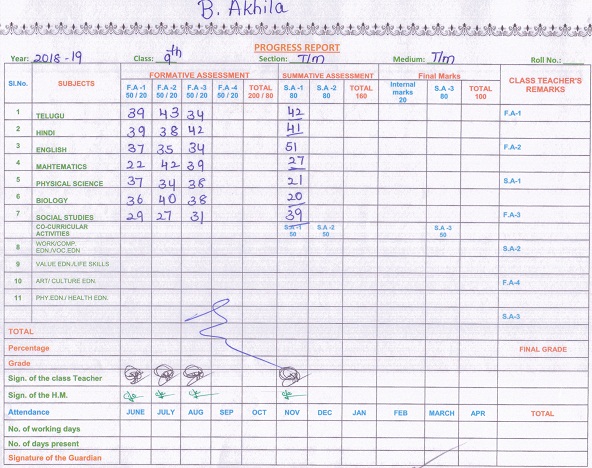 B. Akhila
PROGRESS REPORT
Year: 2018-19 Class: 9th Section: T/m Medium: T/m Roll No.:
Sl.No. SUBJECTS FORMATIVE ASSESSMENT SUMMATIVE ASSESSMENT Final Marks CLASS TEACHER'S REMARKS
F.A -1 50 / 20 F.A -2 50 / 20 F.A -3 50 / 20 F.A -4 50 / 20 TOTAL 200 / 80 S.A -1 80 S.A -2 80 TOTAL 160 Internal marks 20 S.A -3 80 TOTAL 100
1 TELUGU 39 43 34 42 F.A-1
2 HINDI 39 38 42 41
3 ENGLISH 37 35 34 51 F.A-2
4 MAHTEMATICS 22 42 39 27
5 PHYSICAL SCIENCE 37 34 38 21 S.A-1
6 BIOLOGY 36 40 38 20
7 SOCIAL STUDIES 29 27 31 39 F.A-3
CO-CURRICULAR ACTIVITIES S.A -1 50 S.A -2 50 S.A -3 50
8 WORK/COMP. EDN./VOC.EDN S.A-2
9 VALUE EDN./LIFE SKILLS
10 ART/ CULTURE EDN. F.A-4
11 PHY.EDN./ HEALTH EDN.
S.A-3
TOTAL
Percentage FINAL GRADE
Grade
Sign. of the class Teacher
Sign. of the H.M.
Attendance JUNE JULY AUG SEP OCT NOV DEC JAN FEB MARCH APR TOTAL
No. of working days
No. of days present
Signature of the Guardian